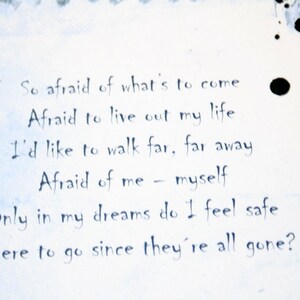 So afraid of what's to come
Afraid to live out my life
I'd like to walk far, far away
Afraid of me – myself
Only in my dreams do I feel safe
ere to go since they´re all gone?